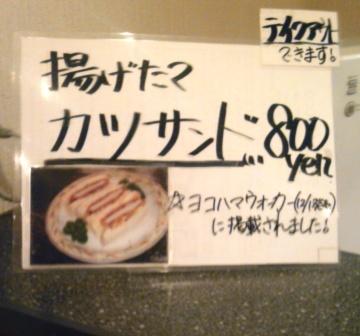 テイクアウト
できます!
揚げたて
カツサンド 800
yen
☆ヨコハマウォーカー
に掲載されました!